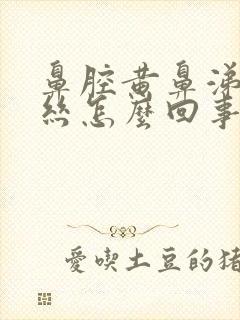 鼻腔黄鼻涕
丝怎麼回事
爱喫土豆的猪